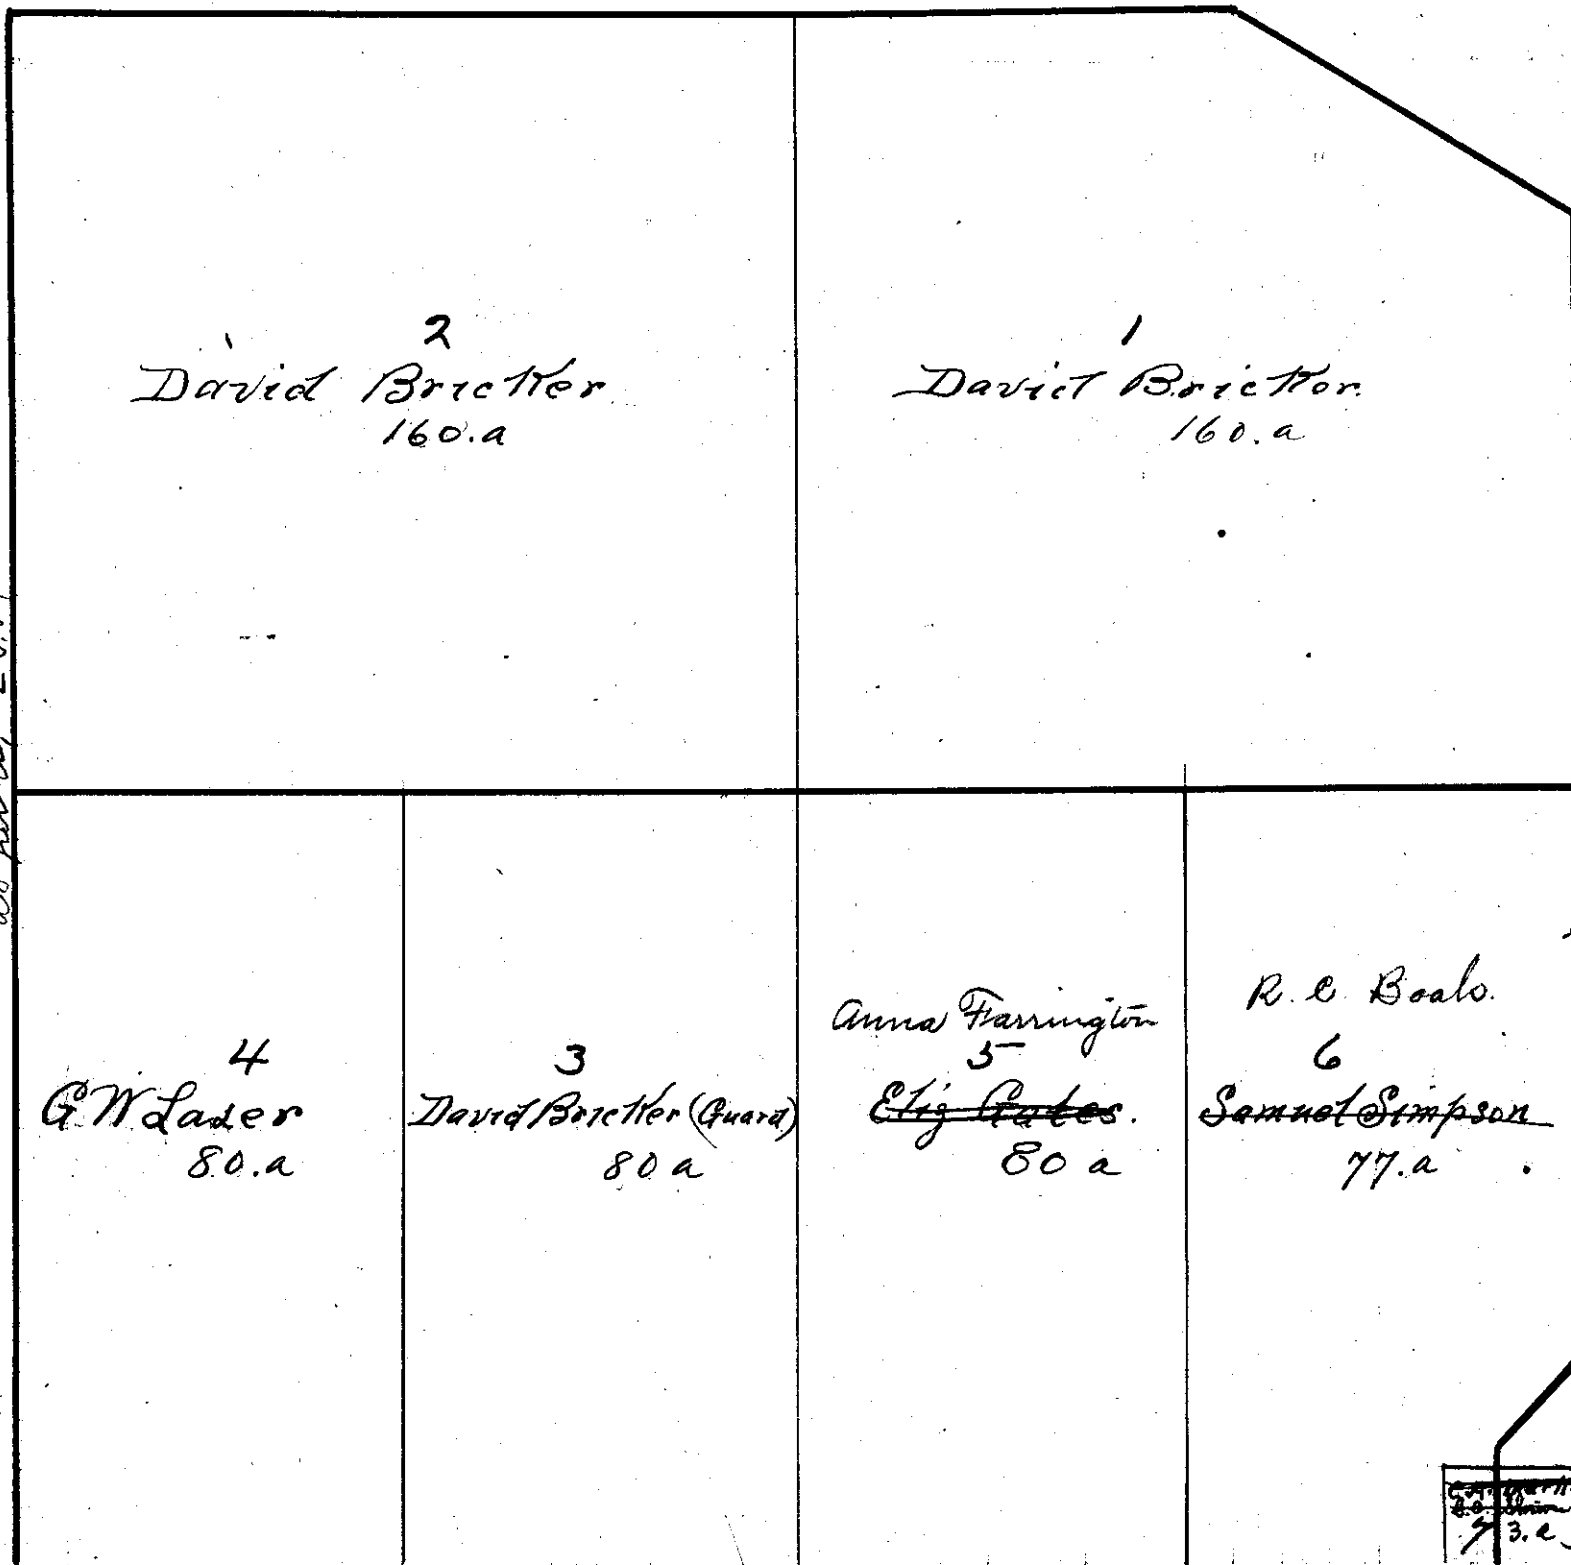 2
David Bricker
160.a
1
David Bricker.
160.a
4
G W Lazer
80.a
3
David Bricker (Guard)
80 a
Anna Farrington
5
Eliz Gates.
80 a
R. C. Boals.
6
Samuel Simpson
77.a
3.a